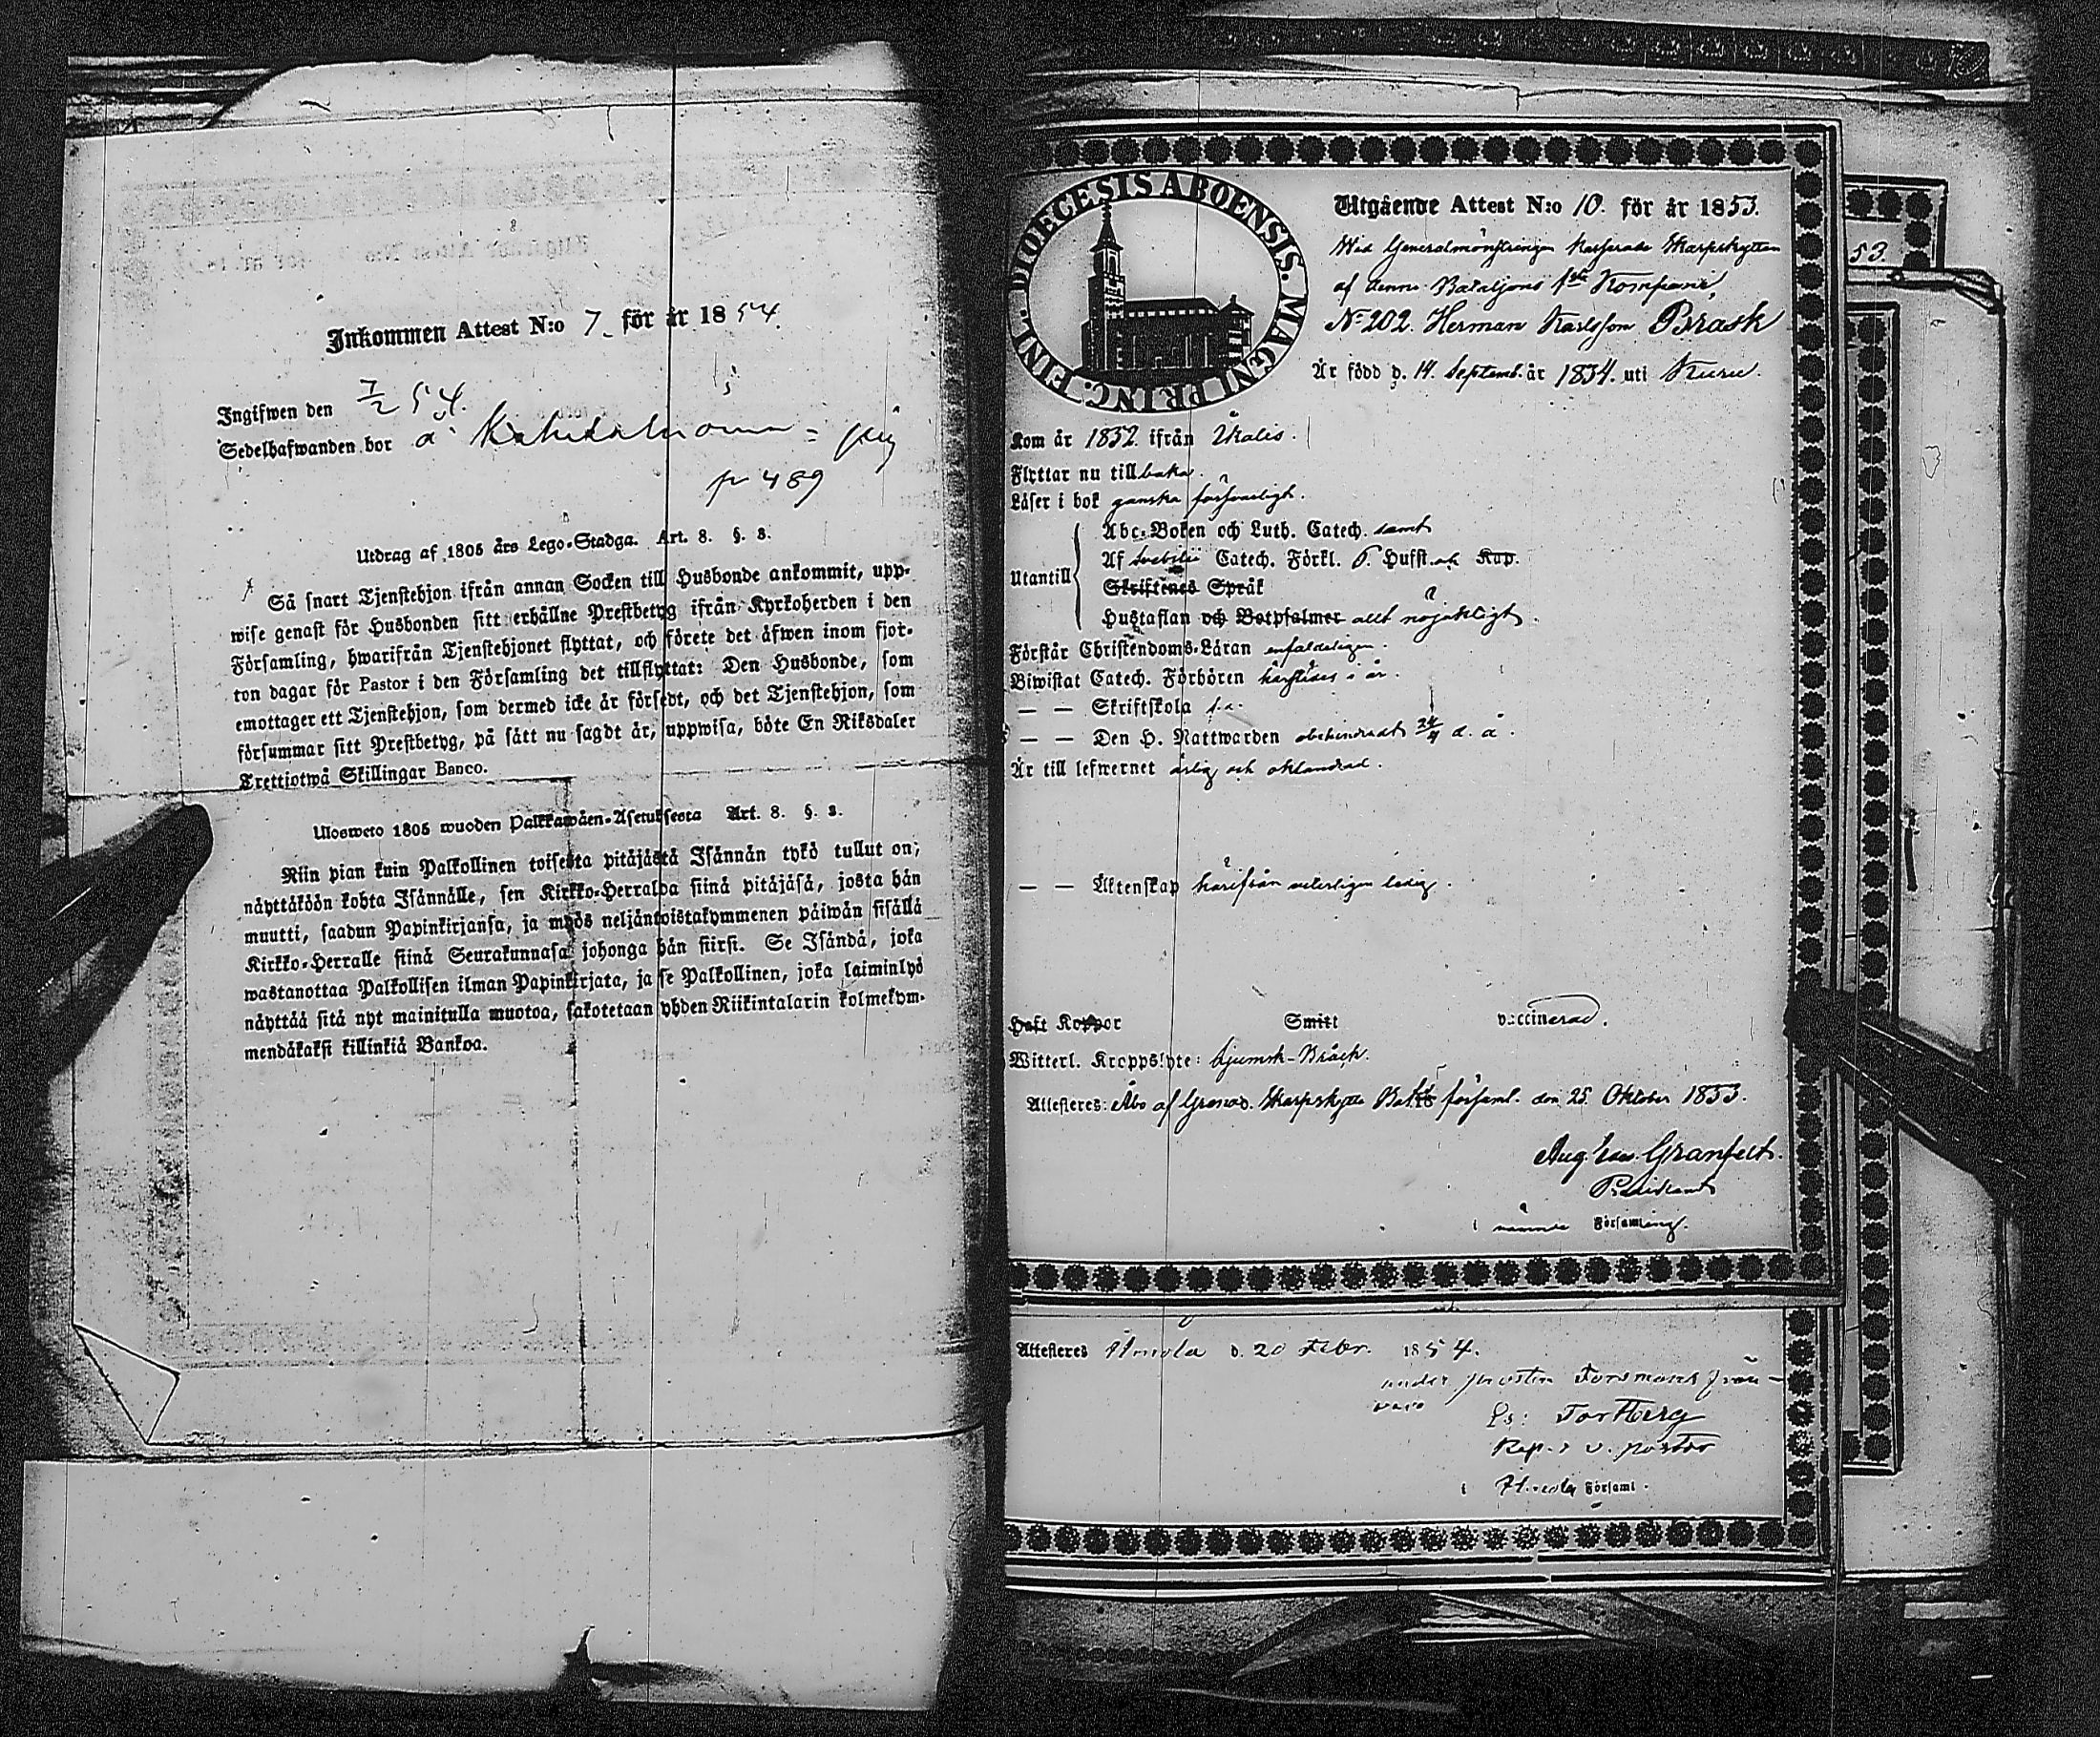 Inkommen Attest N:o 7. för år 1854.
Ingifwen den 7/2 54.
Sedelhafwanden bor å
p 489
Utdrag af 1805 års Lego-Stadga. Art. 8. §. 3.
Så snart Tjenstehjon ifrån annan Socken till Husbonde ankommit, upp-
wise genast för Husbonden sitt erhållne Prestbetyg ifrån Kyrkoherden i den
Församling, hwarifrån Tjenstehjonet flyttat, och förete det äfwen inom fjor-
ton dagar för Pastor i den Församling det tillflyttat: Den Husbonde, som
emottager ett Tjenstehjon, som dermed icke är försedt, och det Tjenstehjon, som
försummar sitt Prestbetyg, på sätt nu sagdt är, uppwisa, böte En Riksdaler
Trettiotwå Skillingar Banco.
Ulosweto 1805 wuoden Palkkawäen-Asetuksesta Art. 8. §. 3.
Niin pian kuin Palkollinen toisesta pitäjästä Isännän tykö tullut on,
näyttäköön kohta Isännälle, sen Kirkko-Herralda siinä pitäjäsä, josta hän
muutti, saadun Papinkirjansa, ja myös neljäntoistakymmenen päiwän sisällä
Kirkko-Herralle siinä Seurakunnasa johonga hän siirsi. Se Isändä, joka
wastanottaa Palkollisen ilman Papinkirjata, ja se Palkollinen, joka laiminlyö
näyttää sitä nyt mainitulla muotoa, sakotetaan yhden Riikintalarin kolmekym-
mendäkaksi killinkiä Bankoa.
DIOECESIS ABOENSIS. MAGNI PRINC. FINL.
Utgående Attest N:o 10. för år 1853.
Wid Generalmönstringen kasserade Skarpskytten
af denne Bataljons 1sta Kompani
N:o 202. Herman Karlsson Brask
Är född d. 14. Septemb. år 1834. uti Kuru.
Kom år 1852. ifrån Ikalis.
Flyttar nu tillbaka.
Läser i bok ganska försvarligt.
Abc-Boken och Luth. Catech. samt
Utantill
Af Svebilii Catech. Förkl. P. Husst. och Kap.
Skriftenes Språk
Hustaflan och Botpsalmer allt nöjaktigt.
Förstår Christendoms-Läran enfaldeligen.
Biwistat Catech. Förhören härstädes i år.
— — Skriftskola s. å.
— — Den H. Nattwarden obehindradt 24/4 d. å.
Är till lefwernet ärlig och oklandrad.
— — Äktenskap härifrån veterligen ledig.
Haft Koppor Smitt vaccinerad.
Witterl. Kroppslyte: Ljumsk-Bråck.
Attesteres: Åbo af Grenad. Skarpskytte Bat:s församl. den 25. Oktober 1853.
Aug. Granfelt.
Predikant
i nämnde Församling.
53.
Attesteres d. 20 Febr. 1854.
under prosten Forsmans från-
varo
Kap. o v. pastor
i Församl.